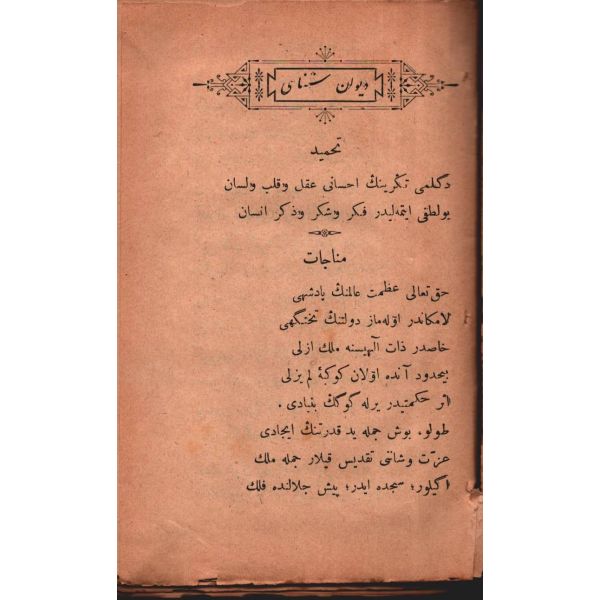 دیوان شناسی
تحمید
دگلمی تڭرینڭ احسانی عقل وقلب ولسان
بولطفی ایتمه‌لیدر فكر وشكر وذكر انسان
مناجات
حق تعالی عظمت عالمنڭ پادشهی
لامكاندر اوله‌ماز دولتنڭ تختگهی
خاصدر ذات آلهیسنه ملك ازلی
بیحدود آنده اولان كوكبهٔ لم یزلی
اثر حكمتیدر یرله كوگڭ بنیادی .
طولو. بوش جمله ید قدرتنڭ ایجادی
عزت وشاننی تقدیس قیلار جمله ملك
اگیلور؛ سجده ایدر؛ پیش جلالنده فلك